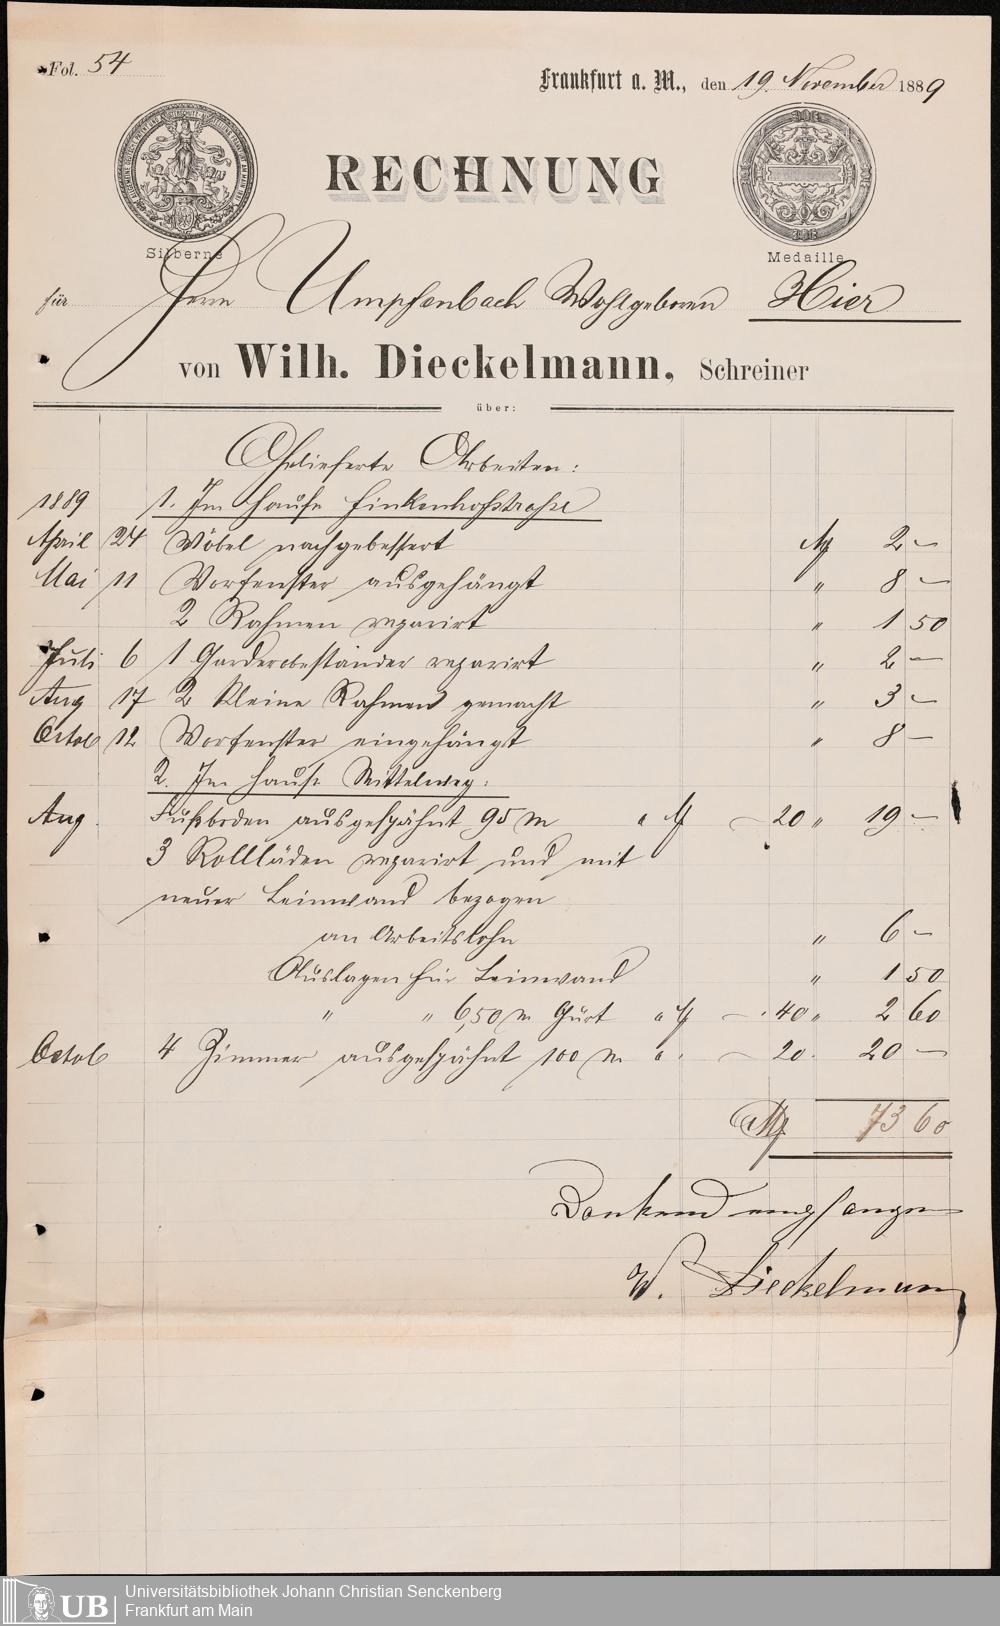 Fol. 54
Frankfurt a. M., den 19. November 1889
RECHNUNG
Silberne Medaille
für Herrn Umpfenbach Wohlgeboren Hier
von Wilh. Dieckelmann, Schreiner
über:
Gelieferte Arbeiten:
1889 1. Im Hause Finkenhofstraße
April 24 Möbel nachgebessert M 2 —
Mai 11 Vorfenster ausgehängt " 8 —
2 Rahmen reparirt " 1 50
Juli 6 1 Garderobeständer reparirt " 2 —
Aug 17 2 kleine Rahmen gemacht " 3 —
Octob 12 Vorfenster eingehängt " 8 —
2. Im Hause Mittelweg:
Aug. Fußboden ausgespähnt 95 m " M — 20 " 19 —
3 Rollläden reparirt und mit
neuer Leinwand bezogen
an Arbeitslohn " 6 —
Auslagen für Leinwand " 1 50
" " 6,50 m Gurt " M — 40 " 2 60
Octob 4 Zimmer ausgespähnt 100 m " — 20 20 —
M 73 60
Dankend empfangen
W. Dieckelmann
UB Universitätsbibliothek Johann Christian Senckenberg
Frankfurt am Main